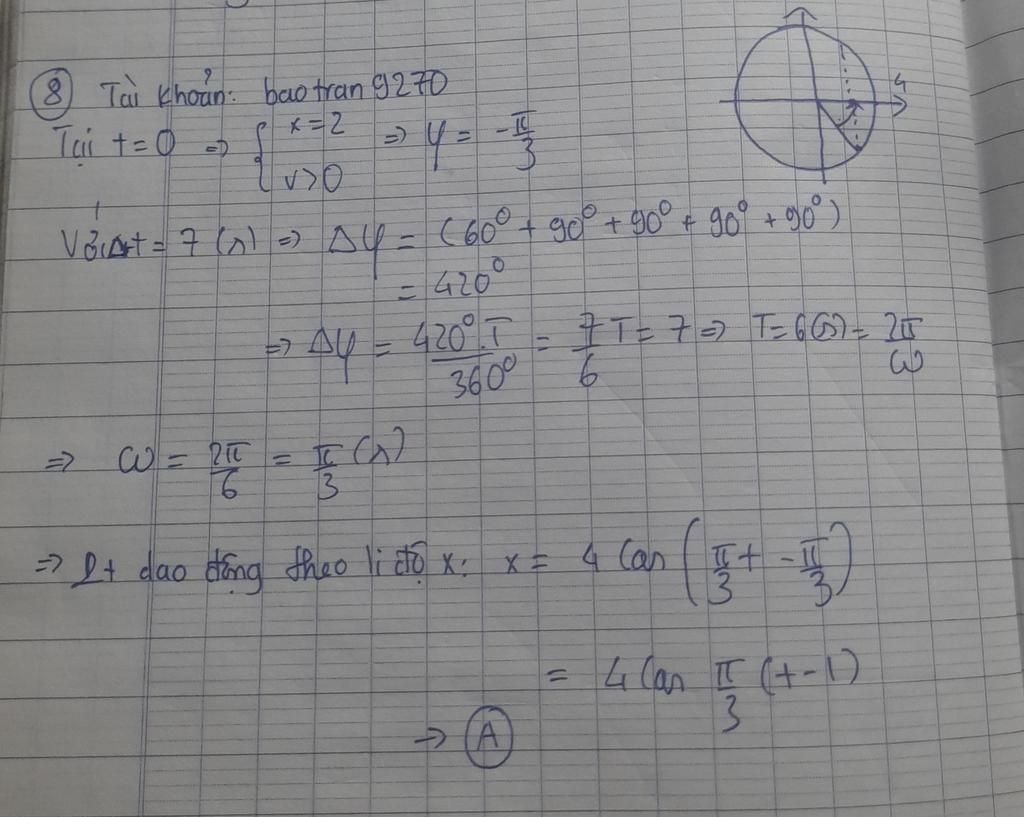 ⑧ Tài khoản: baotran9270
4
Tại t=0 => { x=2 v>0 => φ = -π/3
Với Δt = 7 (s) => Δφ = (60⁰ + 90⁰ + 90⁰ + 90⁰ + 90⁰)
= 420⁰
=> Δφ = 420⁰.T/360⁰ = 7/6 T = 7 => T = 6(s) = 2π/ω
=> ω = 2π/6 = π/3 (s)
=> Pt dao động theo li độ x: x = 4 Cos (π/3 t - π/3)
= 4 Cos π/3 (t-1)
-> Ⓐ